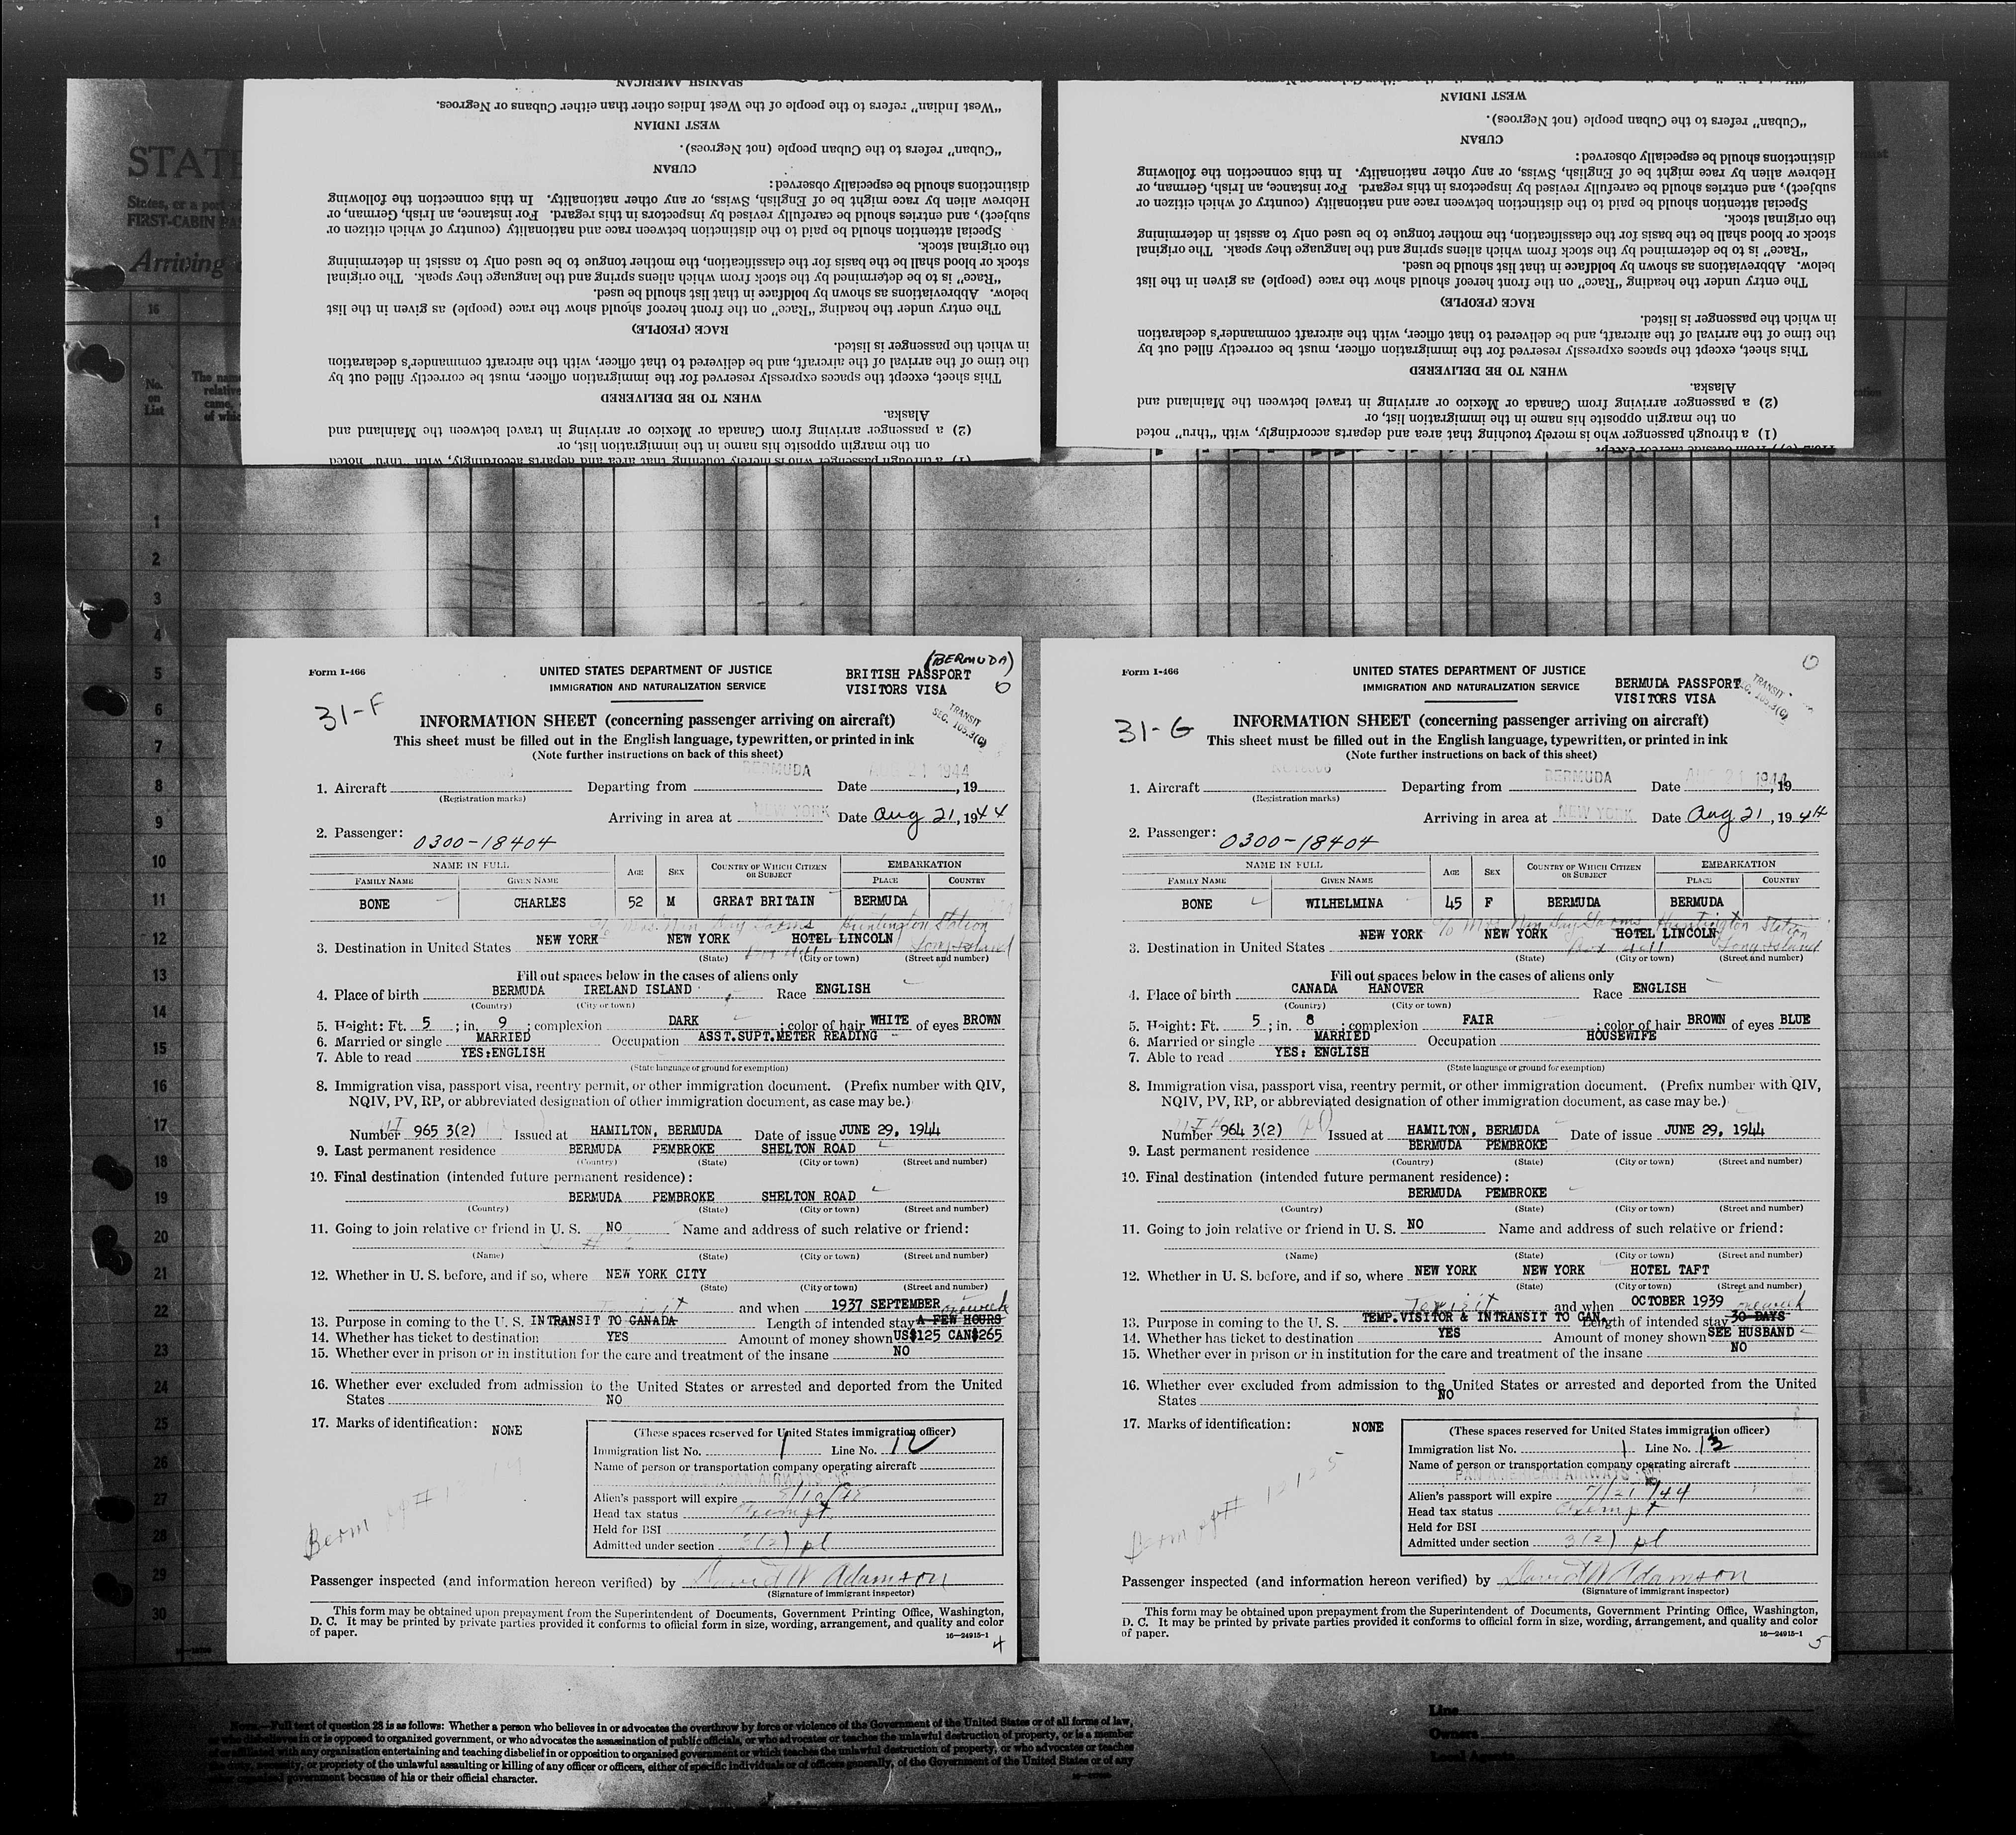 SPANISH AMERICAN
"West Indian" refers to the people of the West Indies other than either Cubans or Negroes.
WEST INDIAN
"Cuban" refers to the Cuban people (not Negroes).
CUBAN
distinctions should be especially observed:
Hebrew alien by race might be of English, Swiss, or any other nationality. In this connection the following
subject), and entries should be carefully revised by inspectors in this regard. For instance, an Irish, German, or
Special attention should be paid to the distinction between race and nationality (country of which citizen or
the original stock.
stock or blood shall be the basis for the classification, the mother tongue to be used only to assist in determining
"Race" is to be determined by the stock from which aliens spring and the language they speak. The original
below. Abbreviations as shown by boldface in that list should be used.
The entry under the heading "Race" on the front hereof should show the race (people) as given in the list
RACE (PEOPLE)
in which the passenger is listed.
the time of the arrival of the aircraft, and be delivered to that officer, with the aircraft commander's declaration
This sheet, except the spaces expressly reserved for the immigration officer, must be correctly filled out by
WHEN TO BE DELIVERED
Alaska.
(2) a passenger arriving from Canada or Mexico or arriving in travel between the Mainland and
on the margin opposite his name in the immigration list, or
(1) a through passenger who is merely touching that area and departs accordingly, with "thru" noted
WEST INDIAN
"Cuban" refers to the Cuban people (not Negroes).
CUBAN
distinctions should be especially observed:
Hebrew alien by race might be of English, Swiss, or any other nationality. In this connection the following
subject), and entries should be carefully revised by inspectors in this regard. For instance, an Irish, German, or
Special attention should be paid to the distinction between race and nationality (country of which citizen or
the original stock.
stock or blood shall be the basis for the classification, the mother tongue to be used only to assist in determining
"Race" is to be determined by the stock from which aliens spring and the language they speak. The original
below. Abbreviations as shown by boldface in that list should be used.
The entry under the heading "Race" on the front hereof should show the race (people) as given in the list
RACE (PEOPLE)
in which the passenger is listed.
the time of the arrival of the aircraft, and be delivered to that officer, with the aircraft commander's declaration
This sheet, except the spaces expressly reserved for the immigration officer, must be correctly filled out by
WHEN TO BE DELIVERED
Alaska.
(2) a passenger arriving from Canada or Mexico or arriving in travel between the Mainland and
on the margin opposite his name in the immigration list, or
(1) a through passenger who is merely touching that area and departs accordingly, with "thru" noted
STATE
States, or a port
FIRST-CABIN
Arriving
16
No. on List
1
2
3
4
5
6
7
8
9
10
11
12
13
14
15
16
17
18
19
20
21
22
23
24
25
26
27
28
29
30
Form I-466
UNITED STATES DEPARTMENT OF JUSTICE
IMMIGRATION AND NATURALIZATION SERVICE
(BERMUDA)
BRITISH PASSPORT
VISITORS VISA
TRANSIT
SEC. 105.3(C)
31-F
INFORMATION SHEET (concerning passenger arriving on aircraft)
This sheet must be filled out in the English language, typewritten, or printed in ink
(Note further instructions on back of this sheet)
1. Aircraft Departing from BERMUDA Date AUG 21 1944, 19
(Registration marks)
Arriving in area at NEW YORK Date Aug 21, 1944
2. Passenger: 0300-18404
NAME IN FULL AGE SEX COUNTRY OF WHICH CITIZEN OR SUBJECT EMBARKATION
FAMILY NAME GIVEN NAME PLACE COUNTRY
BONE CHARLES 52 M GREAT BRITAIN BERMUDA
Huntington Station
3. Destination in United States NEW YORK NEW YORK HOTEL LINCOLN Long Island
(State) (City or town) (Street and number)
Fill out spaces below in the cases of aliens only
4. Place of birth BERMUDA IRELAND ISLAND Race ENGLISH
(Country) (City or town)
5. Height: Ft. 5; in. 9; complexion DARK; color of hair WHITE of eyes BROWN
6. Married or single MARRIED Occupation ASST.SUPT.METER READING
7. Able to read YES:ENGLISH
(State language or ground for exemption)
8. Immigration visa, passport visa, reentry permit, or other immigration document. (Prefix number with QIV,
NQIV, PV, RP, or abbreviated designation of other immigration document, as case may be.)
Number 965 3(2) Issued at HAMILTON, BERMUDA Date of issue JUNE 29, 1944
9. Last permanent residence BERMUDA PEMBROKE SHELTON ROAD
(Country) (State) (City or town) (Street and number)
10. Final destination (intended future permanent residence):
BERMUDA PEMBROKE SHELTON ROAD
(Country) (State) (City or town) (Street and number)
11. Going to join relative or friend in U. S. NO Name and address of such relative or friend:
(Name) (State) (City or town) (Street and number)
12. Whether in U. S. before, and if so, where NEW YORK CITY
(State) (City or town) (Street and number)
and when 1937 SEPTEMBER one week
13. Purpose in coming to the U. S. INTRANSIT TO CANADA Length of intended stay A FEW HOURS
14. Whether has ticket to destination YES Amount of money shown US$125 CAN$265
15. Whether ever in prison or in institution for the care and treatment of the insane NO
16. Whether ever excluded from admission to the United States or arrested and deported from the United
States NO
17. Marks of identification: NONE
(These spaces reserved for United States immigration officer)
Immigration list No. 1 Line No. 12
Name of person or transportation company operating aircraft
Alien's passport will expire
Head tax status Exempt
Held for BSI
Admitted under section 3(2) pl
Passenger inspected (and information hereon verified) by David W Adamson
(Signature of immigrant inspector)
This form may be obtained upon prepayment from the Superintendent of Documents, Government Printing Office, Washington,
D. C. It may be printed by private parties provided it conforms to official form in size, wording, arrangement, and quality and color
of paper.
16—24915-1
4
Form I-466
UNITED STATES DEPARTMENT OF JUSTICE
IMMIGRATION AND NATURALIZATION SERVICE
BERMUDA PASSPORT
VISITORS VISA
TRANSIT
SEC. 105.3(C)
31-G
INFORMATION SHEET (concerning passenger arriving on aircraft)
This sheet must be filled out in the English language, typewritten, or printed in ink
(Note further instructions on back of this sheet)
1. Aircraft Departing from BERMUDA Date AUG 21 1944, 19
(Registration marks)
Arriving in area at NEW YORK Date Aug 21, 1944
2. Passenger: 0300-18404
NAME IN FULL AGE SEX COUNTRY OF WHICH CITIZEN OR SUBJECT EMBARKATION
FAMILY NAME GIVEN NAME PLACE COUNTRY
BONE WILHELMINA 45 F BERMUDA BERMUDA
Huntington Station
3. Destination in United States NEW YORK NEW YORK HOTEL LINCOLN Long Island
(State) (City or town) (Street and number)
Fill out spaces below in the cases of aliens only
4. Place of birth CANADA HANOVER Race ENGLISH
(Country) (City or town)
5. Height: Ft. 5; in. 8; complexion FAIR; color of hair BROWN of eyes BLUE
6. Married or single MARRIED Occupation HOUSEWIFE
7. Able to read YES: ENGLISH
(State language or ground for exemption)
8. Immigration visa, passport visa, reentry permit, or other immigration document. (Prefix number with QIV,
NQIV, PV, RP, or abbreviated designation of other immigration document, as case may be.)
Number 964 3(2) Issued at HAMILTON, BERMUDA Date of issue JUNE 29, 1944
9. Last permanent residence BERMUDA PEMBROKE
(Country) (State) (City or town) (Street and number)
10. Final destination (intended future permanent residence):
BERMUDA PEMBROKE
(Country) (State) (City or town) (Street and number)
11. Going to join relative or friend in U. S. NO Name and address of such relative or friend:
(Name) (State) (City or town) (Street and number)
12. Whether in U. S. before, and if so, where NEW YORK NEW YORK HOTEL TAFT
(State) (City or town) (Street and number)
and when OCTOBER 1939 one week
13. Purpose in coming to the U. S. TEMP.VISITOR & INTRANSIT TO CAN. Length of intended stay 30 DAYS
14. Whether has ticket to destination YES Amount of money shown SEE HUSBAND
15. Whether ever in prison or in institution for the care and treatment of the insane NO
16. Whether ever excluded from admission to the United States or arrested and deported from the United
States NO
17. Marks of identification: NONE
(These spaces reserved for United States immigration officer)
Immigration list No. 1 Line No. 13
Name of person or transportation company operating aircraft
PAN AMERICAN AIRWAYS
Alien's passport will expire 7/21/44
Head tax status Exempt
Held for BSI
Admitted under section 3(2) pl
Passenger inspected (and information hereon verified) by David W Adamson
(Signature of immigrant inspector)
This form may be obtained upon prepayment from the Superintendent of Documents, Government Printing Office, Washington,
D. C. It may be printed by private parties provided it conforms to official form in size, wording, arrangement, and quality and color
of paper.
16—24915-1
5
Note.—Full text of question 28 is as follows: Whether a person who believes in or advocates the overthrow by force or violence of the Government of the United States or of all forms of law,
or who disbelieves in or is opposed to organized government, or who advocates the assassination of public officials, or who advocates or teaches the unlawful destruction of property, or is a member
of or affiliated with any organization entertaining and teaching disbelief in or opposition to organized government or which teaches the unlawful destruction of property, or who advocates or teaches
the duty, necessity, or propriety of the unlawful assaulting or killing of any officer or officers, either of specific individuals or of officers generally, of the Government of the United States or of any
other organized government because of his or their official character.
Line
Owners
Local Agents